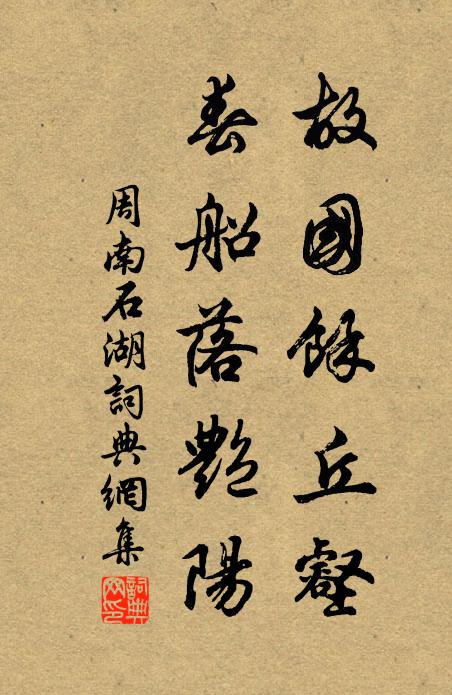 故國餘丘壑
春船落艷陽
周南石湖詞典網集
詞典網印